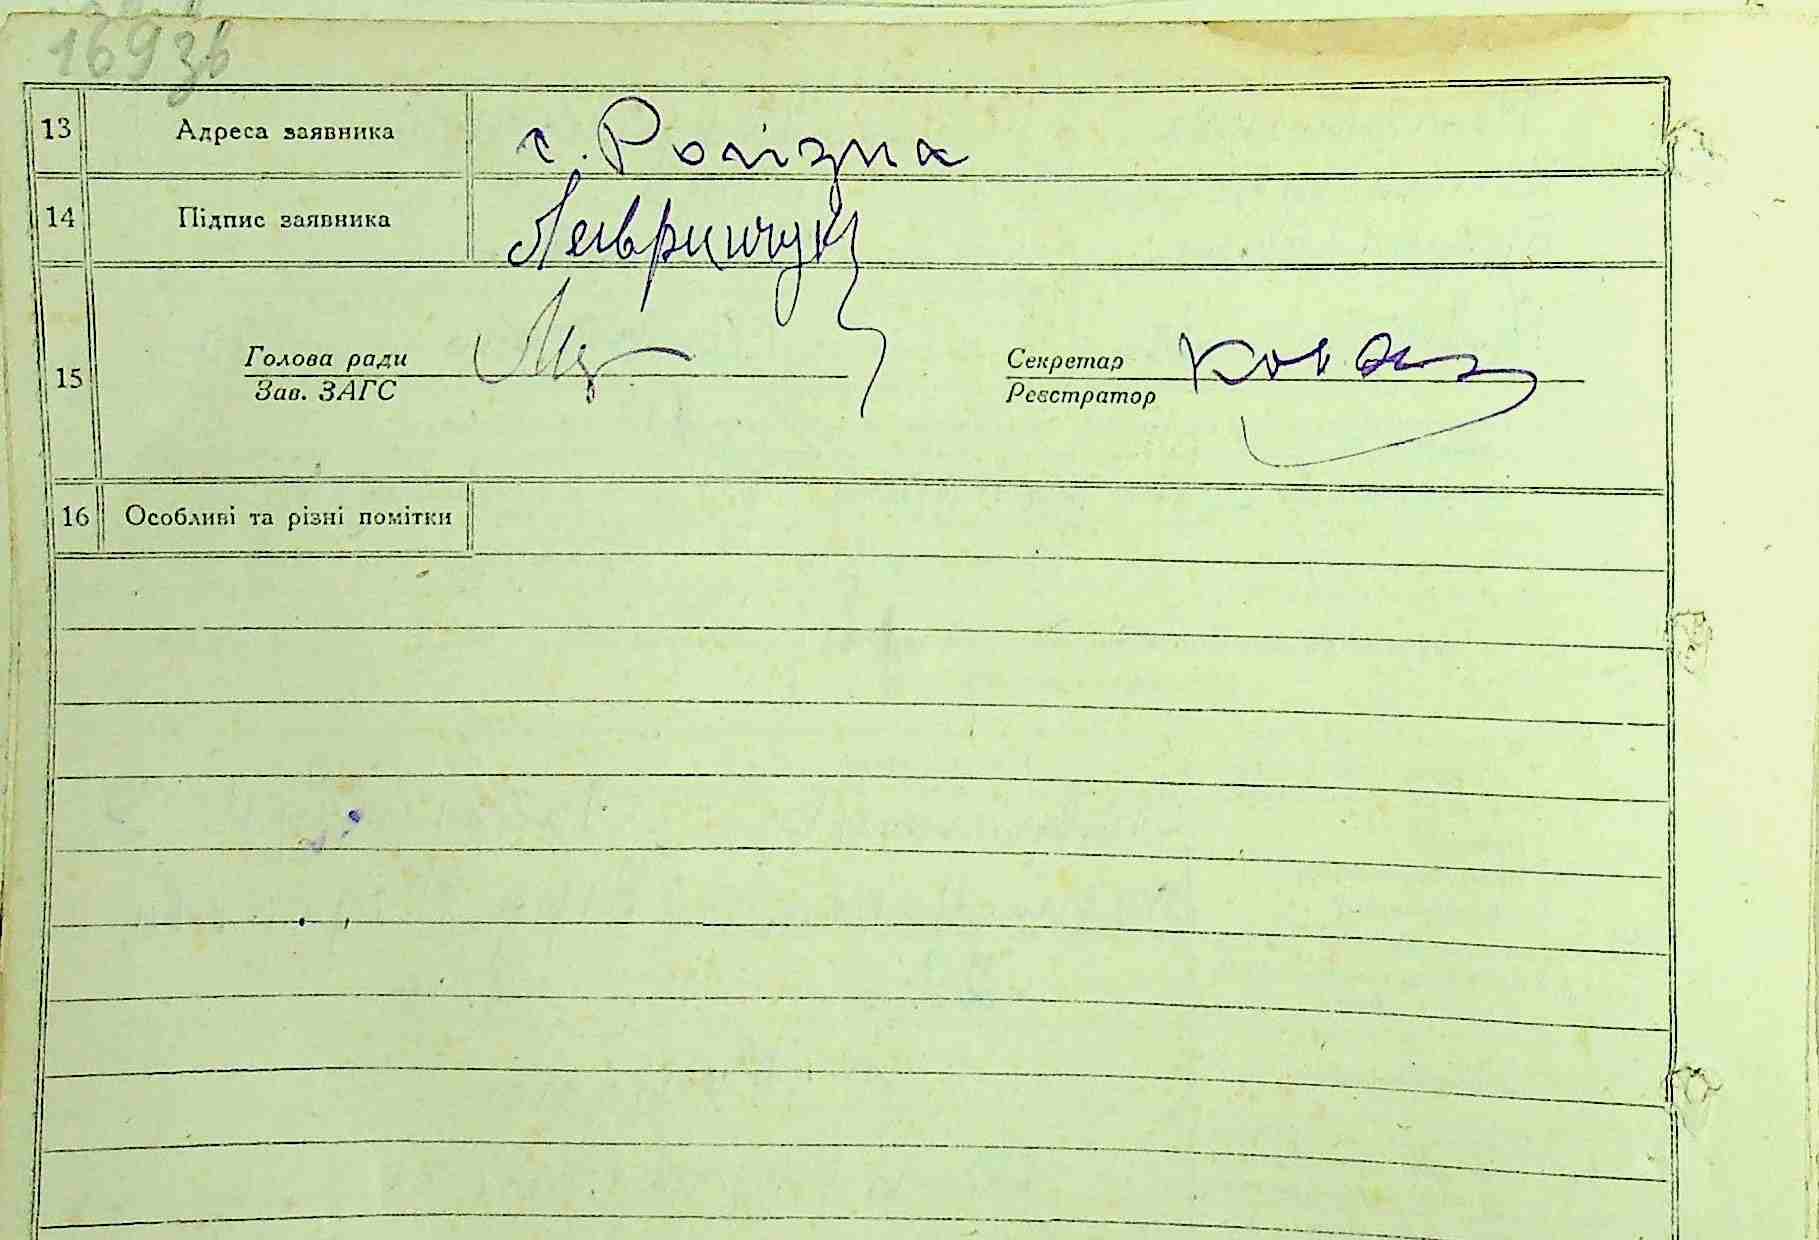 169зв
13 Адреса заявника с. Розізна
14 Підпис заявника Лаврищук
15 Голова ради
Зав. ЗАГС
Секретар
Реєстратор
16 Особливі та різні помітки